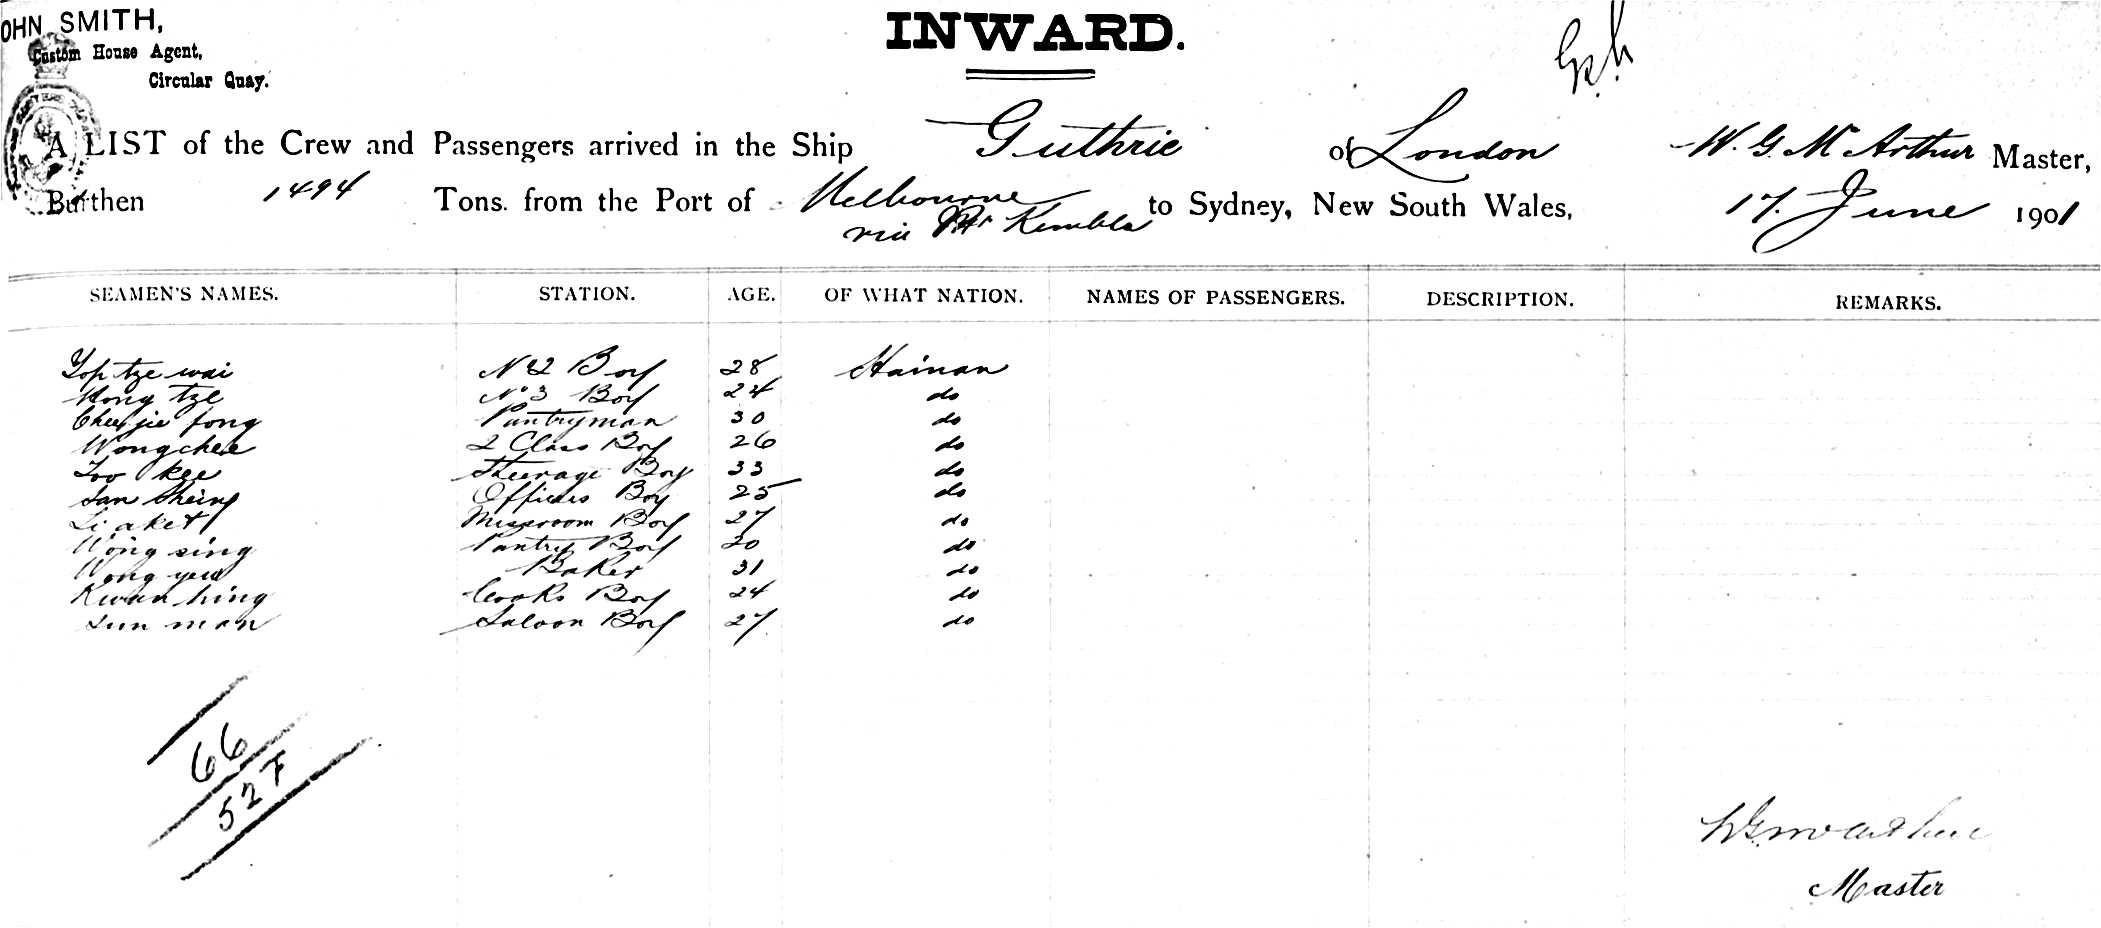 OHN SMITH,
Custom House Agent,
Circular Quay.
INWARD.
A LIST of the Crew and Passengers arrived in the Ship Guthrie of London W. G. McArthur Master,
Burthen 1494 Tons. from the Port of Melbourne via Pt Kembla to Sydney, New South Wales, 17. June 1901
SEAMEN'S NAMES. STATION. AGE. OF WHAT NATION. NAMES OF PASSENGERS. DESCRIPTION. REMARKS.
Yop tze wai No 2 Boy 28 Hainan
Hong tze No 3 Boy 24 do
fong Pantryman 30 do
Wongchee 2 Class Boy 26 do
Too kee Steerage Boy 33 do
San Officers Boy 25 do
Li aket Messroom Boy 27 do
Wong sing Pantry Boy 20 do
Wong yew Baker 31 do
Kwan hing Cooks Boy 24 do
Sun man Saloon Boy 27 do
66
527
WGMcArthur
Master